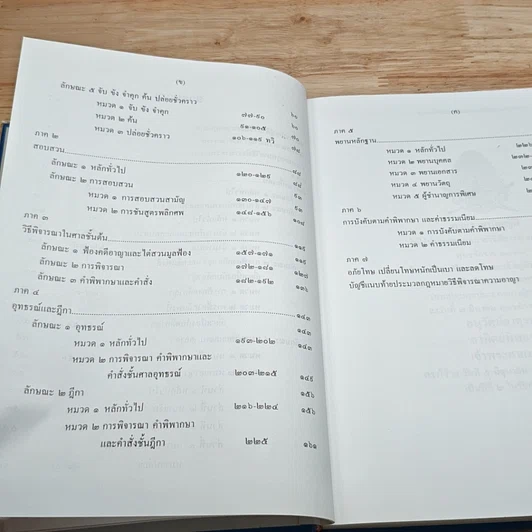 (ข)
ลักษณะ ๕ จับ ขัง จำคุก ค้น ปล่อยชั่วคราว
หมวด ๑ จับ ขัง จำคุก ๗๗-๙๐
หมวด ๒ ค้น ๙๑-๑๐๕
หมวด ๓ ปล่อยชั่วคราว ๑๐๖-๑๑๙ ทวิ
ภาค ๒
สอบสวน
ลักษณะ ๑ หลักทั่วไป ๑๒๐-๑๒๙
ลักษณะ ๒ การสอบสวน
หมวด ๑ การสอบสวนสามัญ ๑๓๐-๑๔๗
หมวด ๒ การชันสูตรพลิกศพ ๑๔๗-๑๕๖
ภาค ๓
วิธีพิจารณาในศาลชั้นต้น
ลักษณะ ๑ ฟ้องคดีอาญาและไต่สวนมูลฟ้อง ๑๕๗-๑๗๑
ลักษณะ ๒ การพิจารณา ๑๗๒-๑๘๑
ลักษณะ ๓ คำพิพากษาและคำสั่ง ๑๘๒-๑๙๒
ภาค ๔
อุทธรณ์และฎีกา ๑๔๓
ลักษณะ ๑ อุทธรณ์ ๑๔๓
หมวด ๑ หลักทั่วไป ๑๙๓-๒๐๒ ๑๔๓
หมวด ๒ การพิจารณา คำพิพากษาและ
คำสั่งชั้นศาลอุทธรณ์ ๒๐๓-๒๑๕ ๑๔๙
ลักษณะ ๒ ฎีกา ๑๕๖
หมวด ๑ หลักทั่วไป ๒๑๖-๒๒๔ ๑๕๖
หมวด ๒ การพิจารณา คำพิพากษา
และคำสั่งชั้นฎีกา ๒๒๕ ๑๖๑
(ค)
ภาค ๕
พยานหลักฐาน
หมวด ๑ หลักทั่วไป
หมวด ๒ พยานบุคคล
หมวด ๓ พยานเอกสาร
หมวด ๔ พยานวัตถุ
หมวด ๕ ผู้ชำนาญการพิเศษ
ภาค ๖
การบังคับตามคำพิพากษา และค่าธรรมเนียม
หมวด ๑ การบังคับตามคำพิพากษา
หมวด ๒ ค่าธรรมเนียม
ภาค ๗
อภัยโทษ เปลี่ยนโทษหนักเป็นเบา และลดโทษ
บัญชีแนบท้ายประมวลกฎหมายวิธีพิจารณาความอาญา